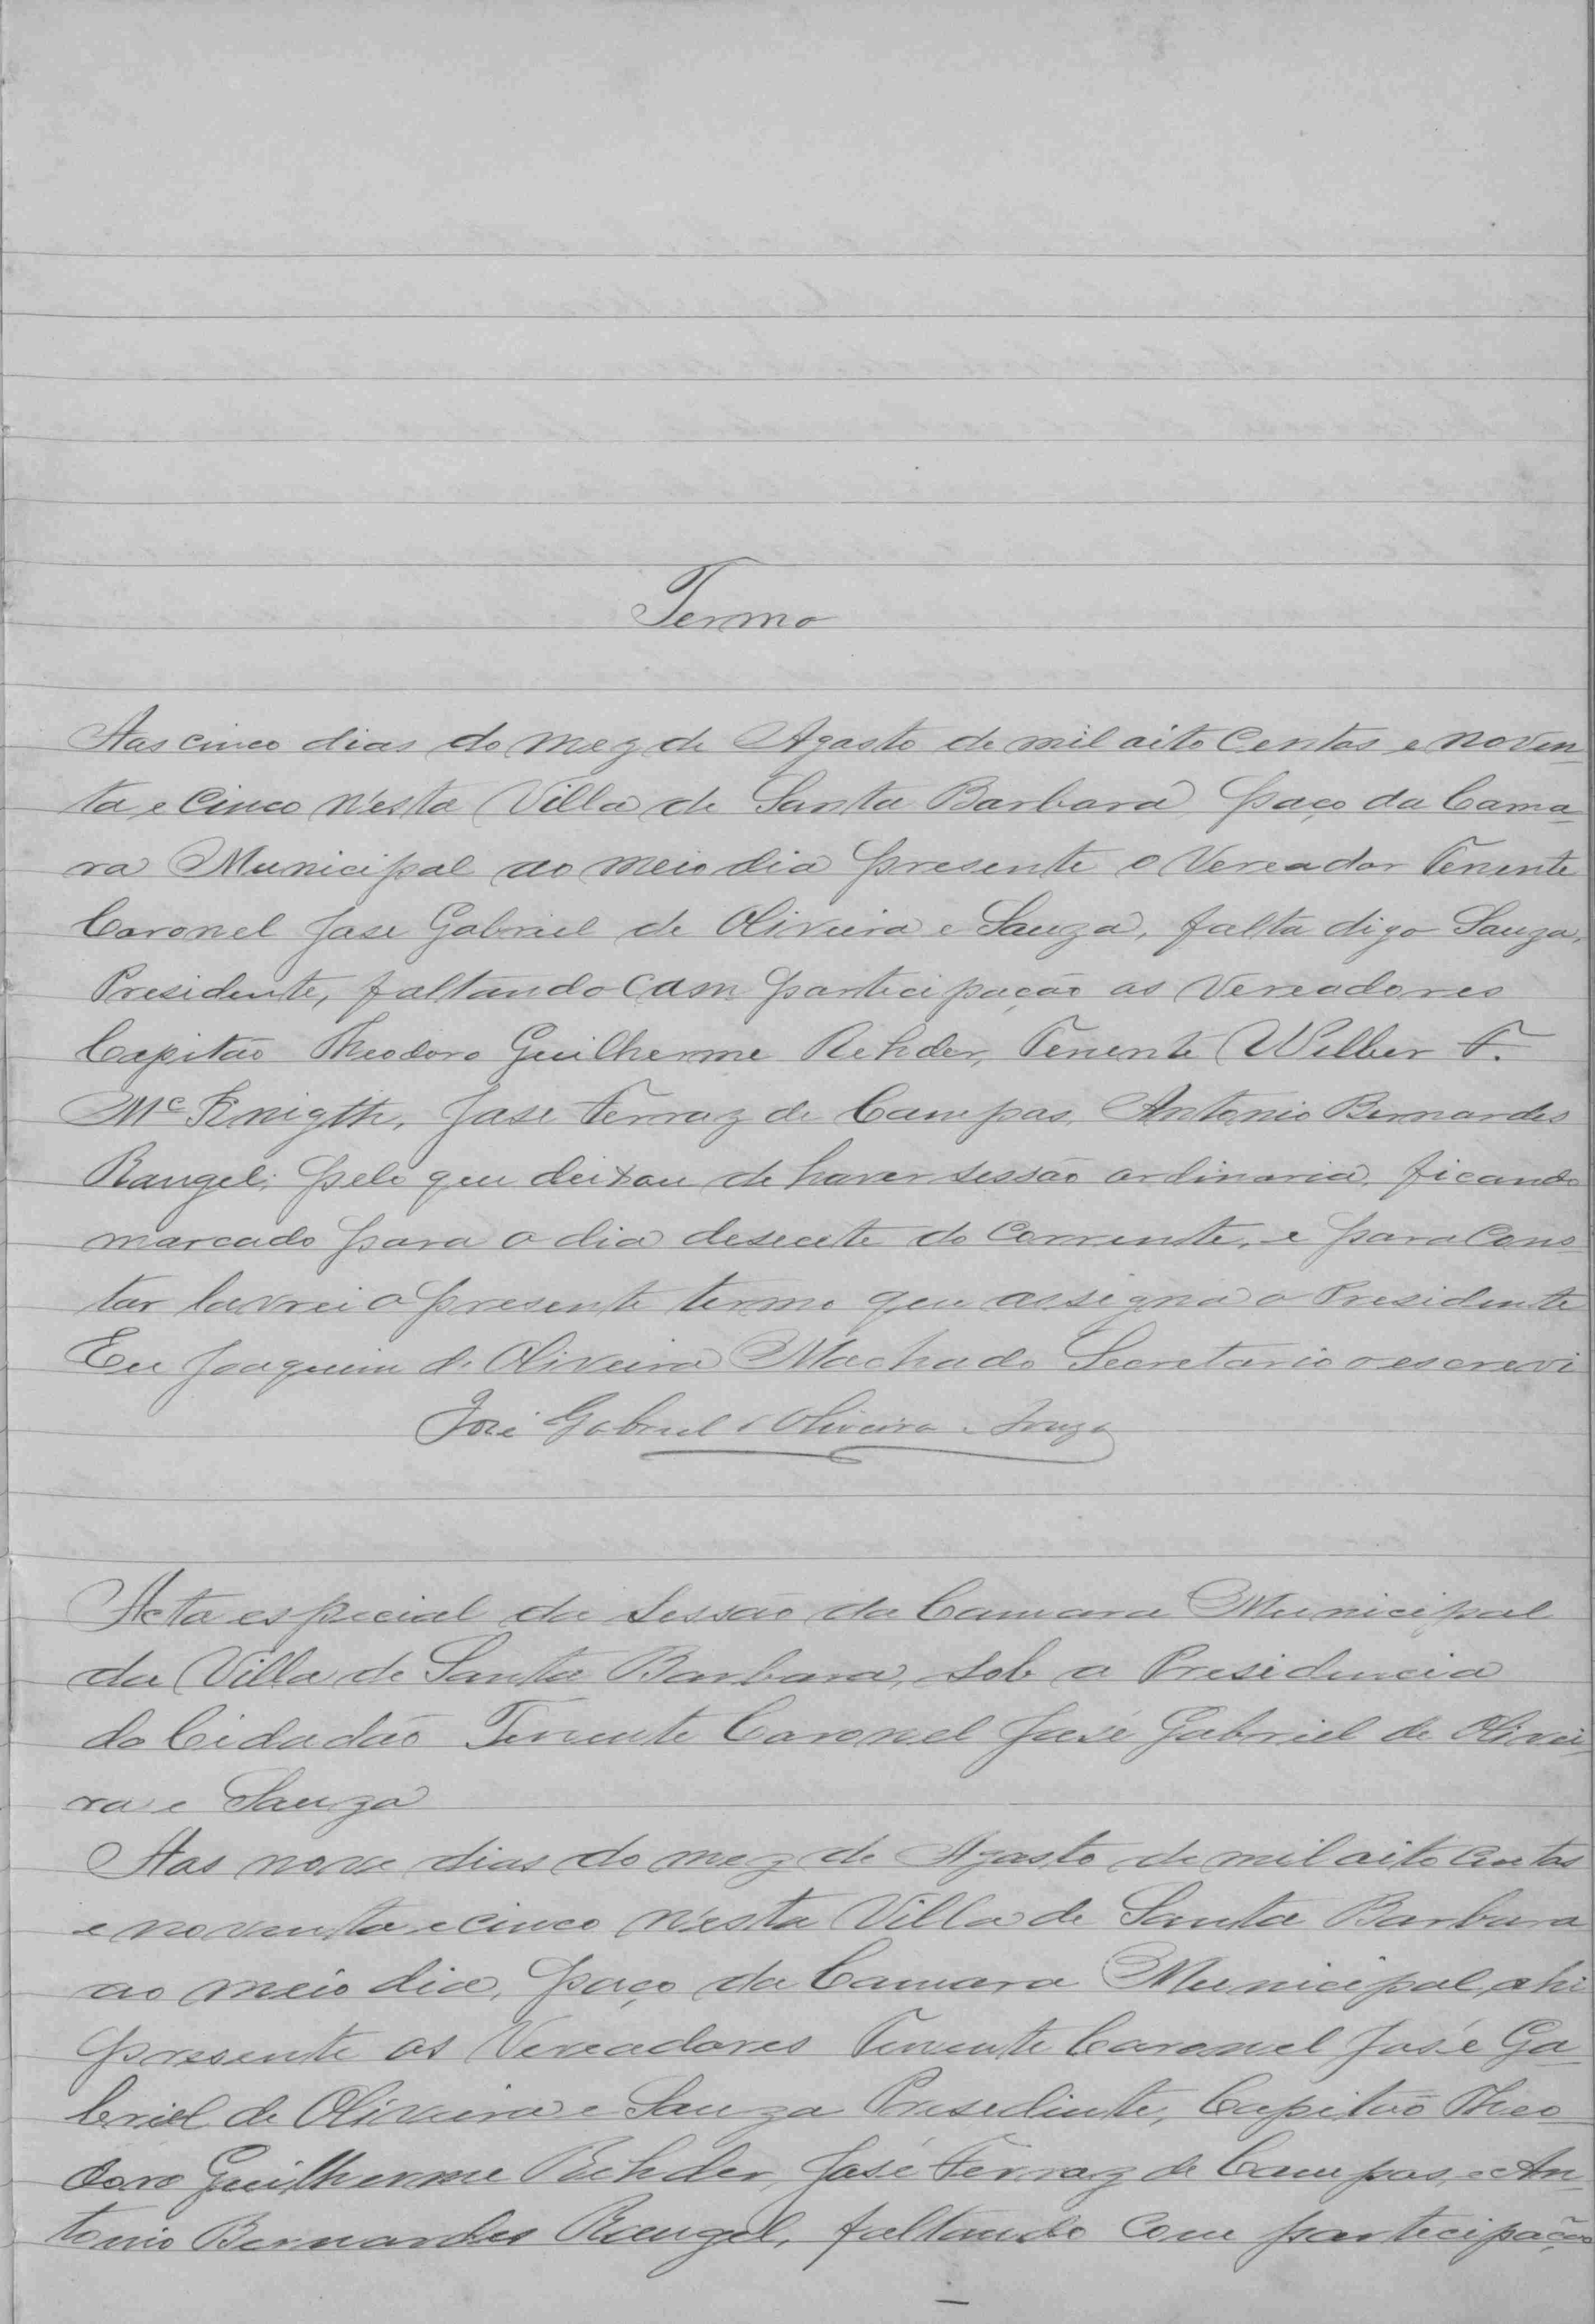 Termo
Aos cinco dias do mez de Agosto de mil oito centos e noven
ta e cinco n'esta Villa de Santa Barbara paço da Cama
ra Municipal ao meio dia presente o Vereador Tenente
Coronel José Gabriel de Oliveira e Souza, falta digo Souza,
Presidente, faltando com participação os Vereadores
Capitão Theodoro Guilherme Rehder, Tenente Wilber F.
Mc Knigth, José Ferraz de Campos, Antonio Bernardes
Rangel; pelo que deixou de haver sessão ordinaria, ficando
marcado para o dia desecete do corrente, e para cons
tar lavrei o presente termo que assigna o Presidente
Eu Joaquim de Oliveira Machado Secretario o escrevi
José Gabriel d'Oliveira e Souza
Acta especial da Sessão da Camara Municipal
da Villa de Santa Barbara, sob a Presidencia
do Cidadão Tenente Coronel José Gabriel de Olivei
ra e Souza
Aos nove dias do mez de Agosto de mil oito centos
e noventa e cinco n'esta Villa de Santa Barbara
ao meio dia, paço da Camara Municipal, ahi
presente os Vereadores Tenente Coronel José Ga
briel de Oliveira e Souza Presediente, Capitão Theo
doro Guilherme Rehder, José Ferraz de Campos, e An
tonio Bernardes Rangel, faltando com participação